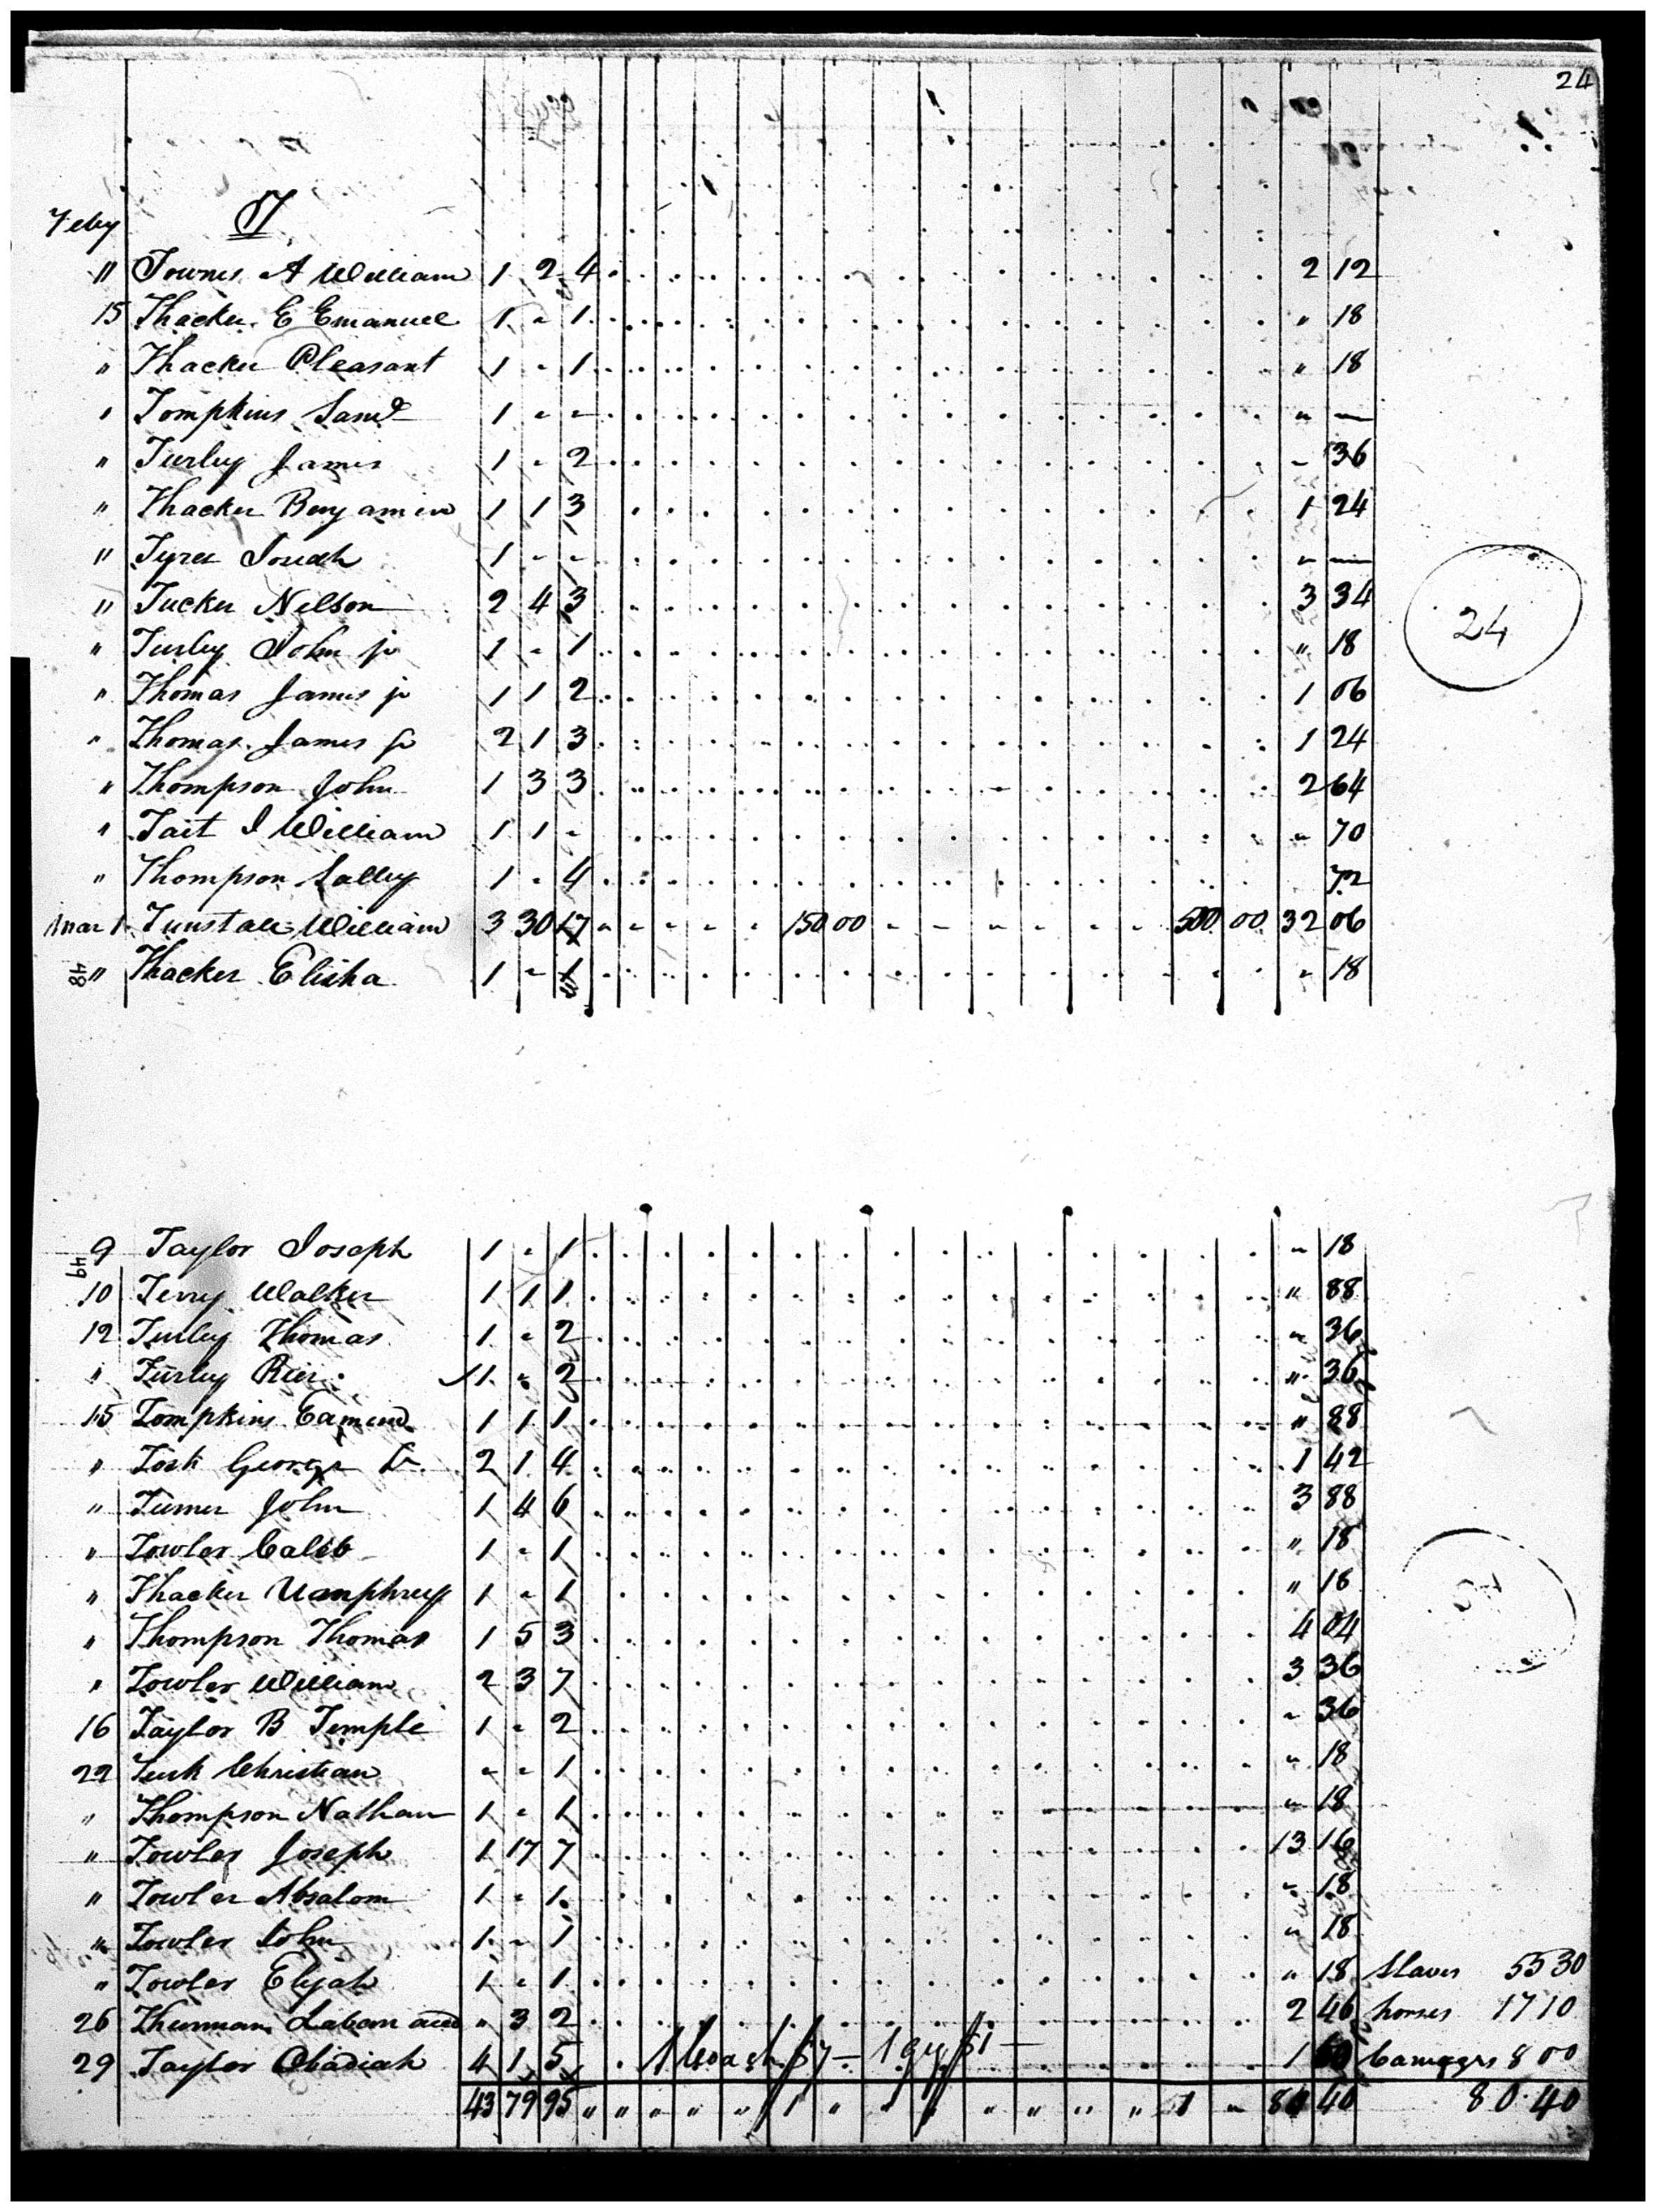 24
Feby T
" Townes A William 1 2 4 2 12
15 Thacker E Emanuel 1 - 1 " 18
" Thacker Pleasant 1 - 1 " 18
" Tompkins Saml 1 - - " —
" Turley James 1 - 2 - 36
" Thacker Benjamin 1 1 3 1 24
" Tyree Josiah 1 - - " —
" Tucker Nelson 2 4 3 3 34
24
" Turley John jr 1 - 1 " 18
" Thomas James jr 1 1 2 1 06
" Thomas James sr 2 1 3 1 24
" Thompson John 1 3 3 2 64
" Tait I William 1 1 - - 70
" Thompson Salley 1 - 4 72
Mar 1 Tunstall William 3 30 17 - - - - - 150 00 - - - - - - 500 00 32 06
" Thacker Elisha 1 - 1 - 18
48
49
9 Taylor Joseph 1 - 1 - 18
10 Terry Walker 1 1 1 " 88
12 Turley Thomas 1 - 2 " 36
" Turley Rice 1 - 2 " 36
15 Tompkins Edmund 1 1 1 " 88
" George 2 1 4 1 42
" Turner John 1 4 6 3 88
" Towler Caleb 1 - 1 " 18
" Thacker Umphrey 1 - 1 " 18
" Thompson Thomas 1 5 3 4 04
" Towler William 2 3 7 3 36
16 Taylor B Temple 1 - 2 - 36
22 Christian - - 1 " 18
" Thompson Nathan 1 - 1 " 18
" Towler Joseph 1 17 7 13 16
" Towler Absalom 1 - 1 " 18
" Towler John 1 - 1 " 18
" Towler Elijah 1 - 1 " 18 Slaves 55 30
26 Thurman Laban " 3 2 2 46 horses 17 10
29 Taylor Obadiah 4 1 5 1 Coach $7 — 1 gig $1 — 1 60 Carriages 8 00
43 79 95 " " " " " 1 " " " " " " " 1 " 80 40 80.40